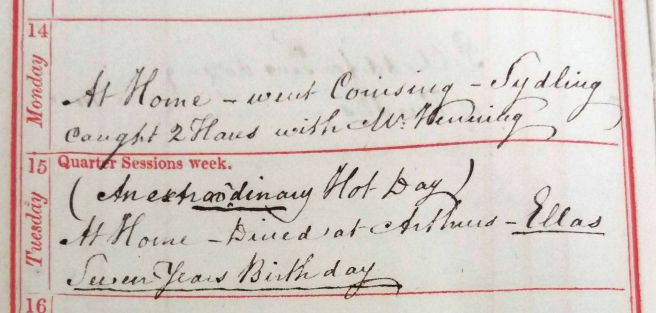 14
Monday
At Home – went Coursing – Sydling
caught 2 Hares with Mr. Henning
15
Quarter Sessions week.
Tuesday
(An extraordinary Hot Day)
At Home – Dined at Arthurs – Ellas
Seven Years Birthday
16